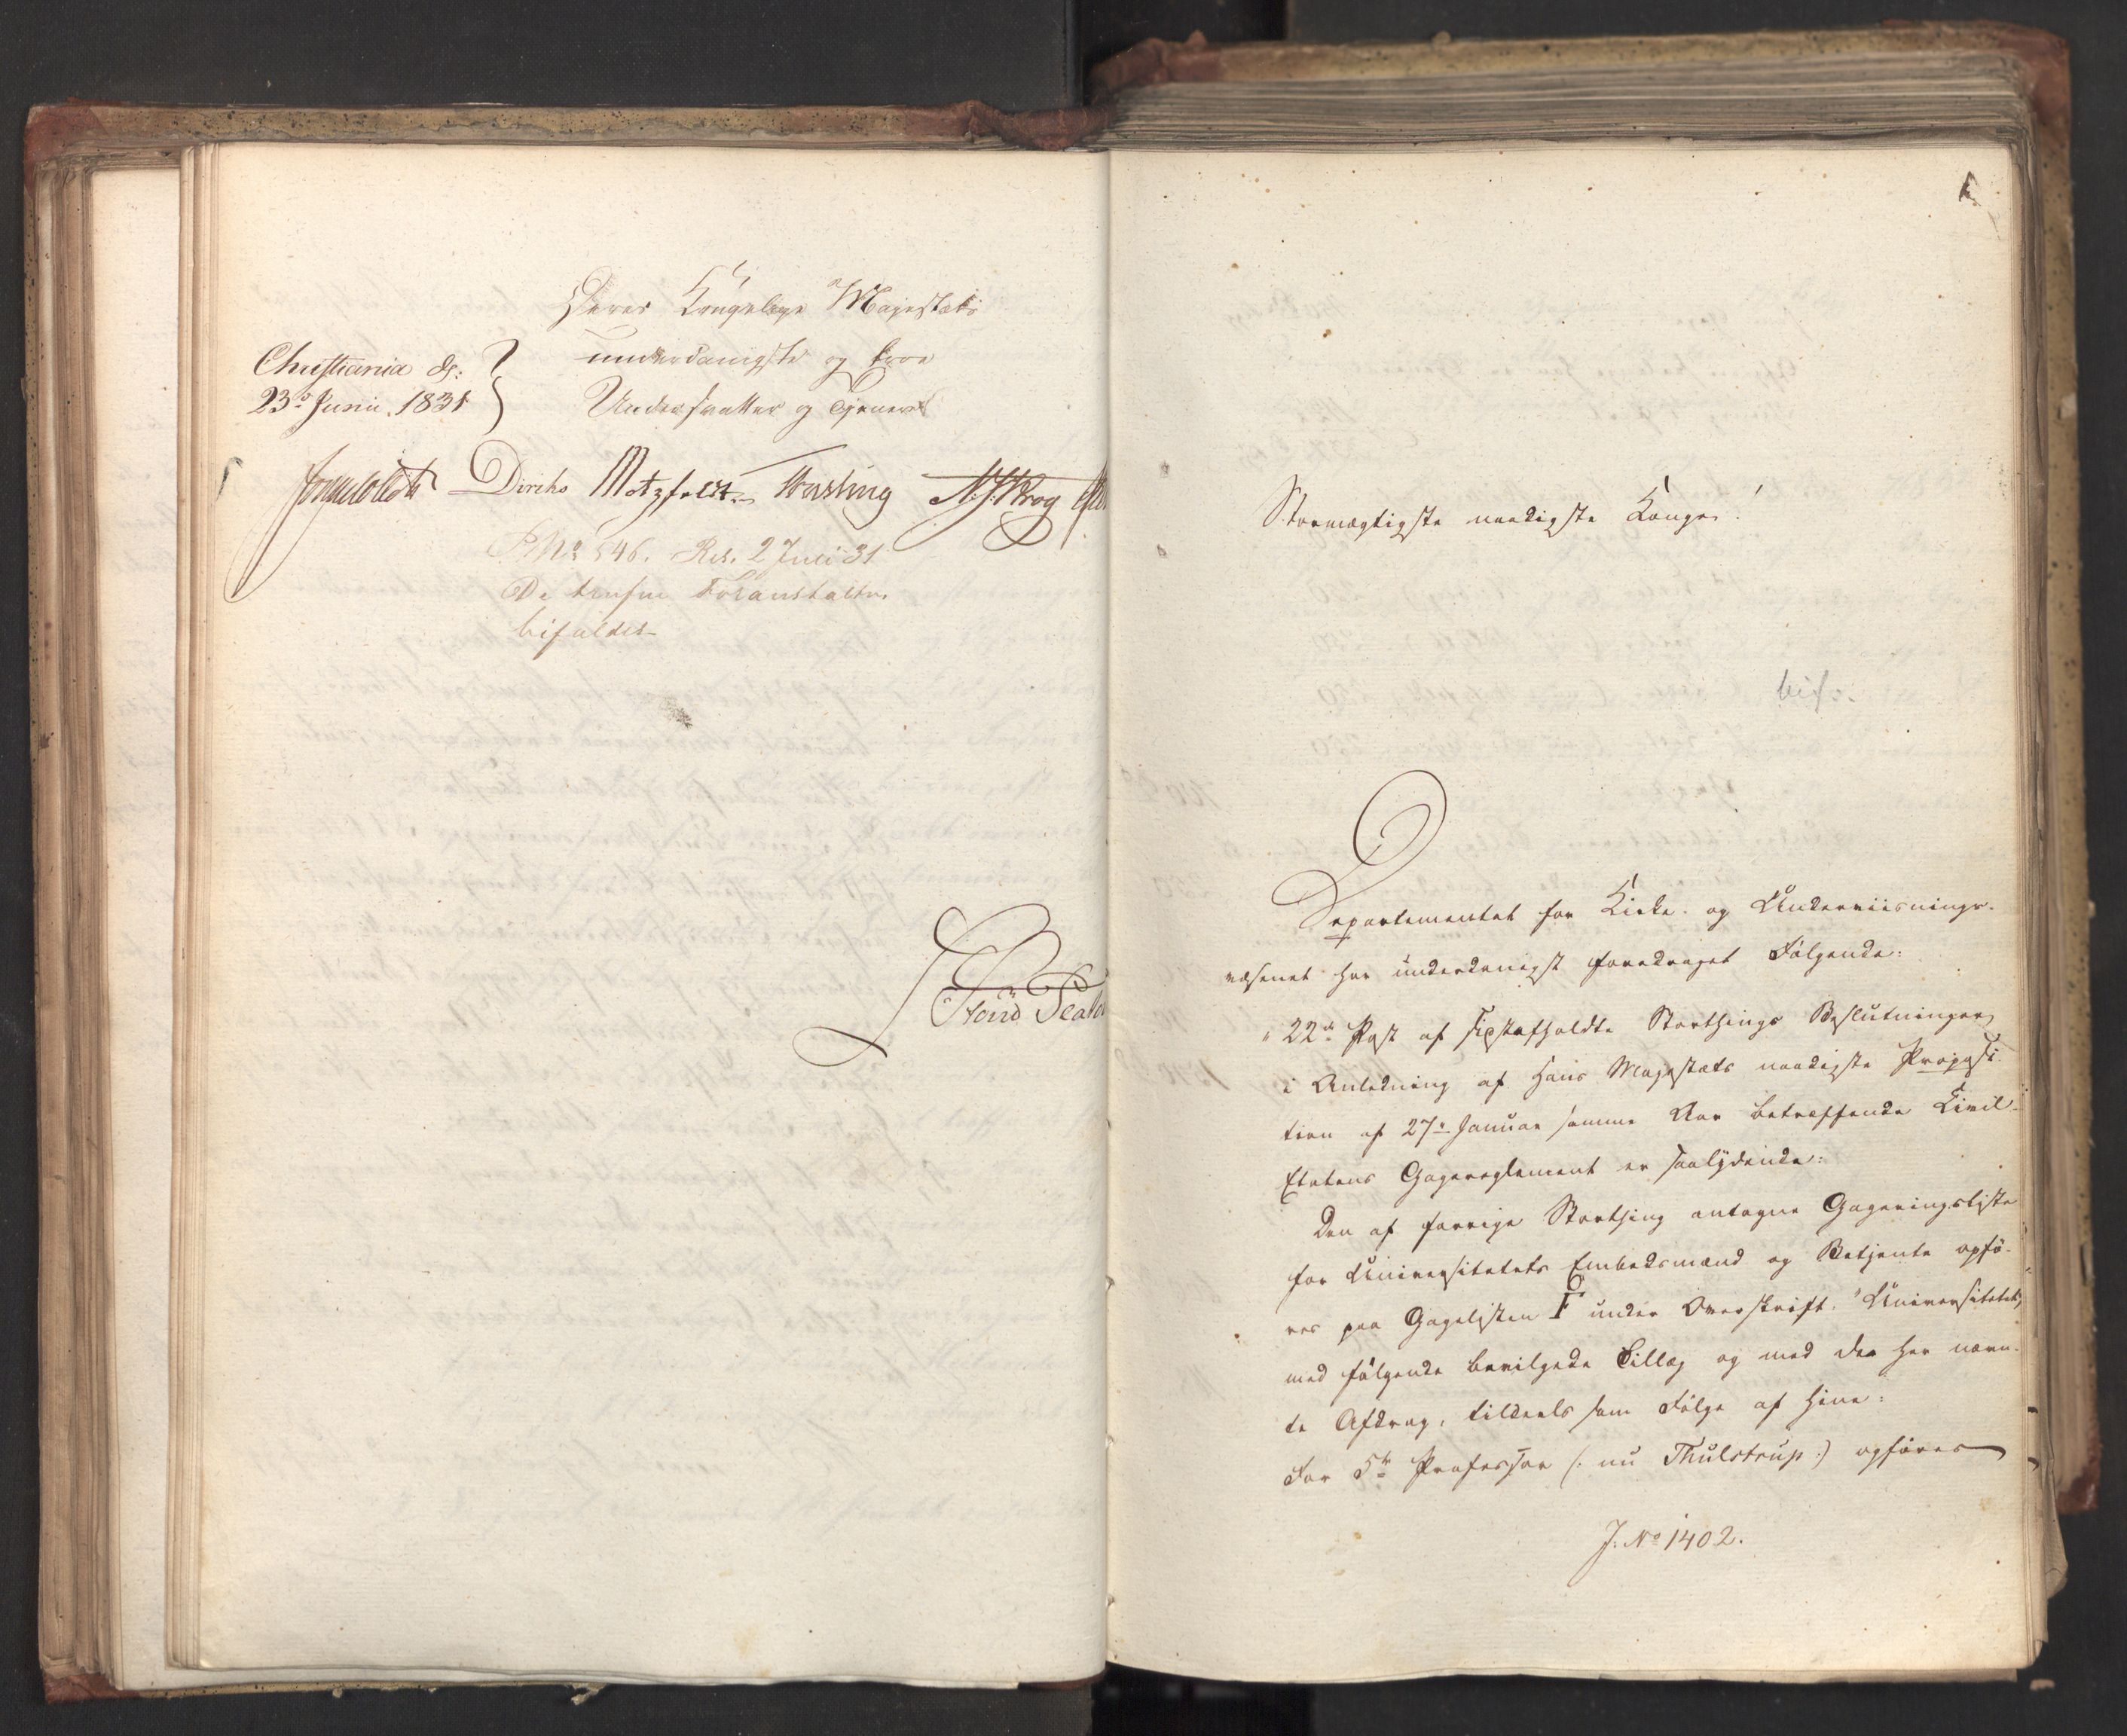 Deres Kongelige Majestæts
underdanigste og troe
Undersaatter og Tjenere
Christiania d:
23de Junii. 1831
Diriks Motzfeldt Fasting N. J. Krog
P. No 546. Res. 2 Juli 31
De trufne Foranstaltn.
bifaldes
Stormægtigste naadigste Konge!
bif:
Departementet for Kirke- og Underviisnings-
væsenet har underdanigst foredraget Følgende:
"22de Post af sidstafholdte Storthings Beslutninger
i Anledning af Hans Majestæts naadigste Proposi-
tion af 27de Januar samme Aar betræffende Civil-
Etatens Gagereglement er saalydende:
Den af forrige Storthing antagne Gageringsliste
for Universitetets Embedsmænd og Betjente opfø-
res paa Gagelisten F under Overskrift: "Universitetet,
med følgende bevilgede Tillæg og med de her nævn-
te Afdrag, tildeels som Følge af hine:
For 5te Professor (: nu Thulstrup :) opføres
J. No 1402.